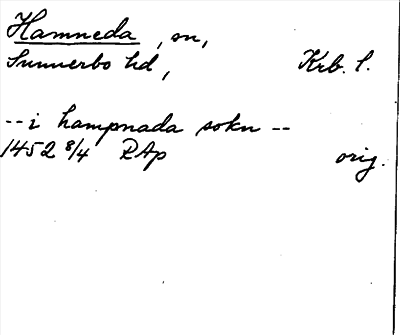 Hamneda, sn,
Sunnerbo hd, Krb. l.
-- i hampnada sokn --
1452 8/4 RAp orig.